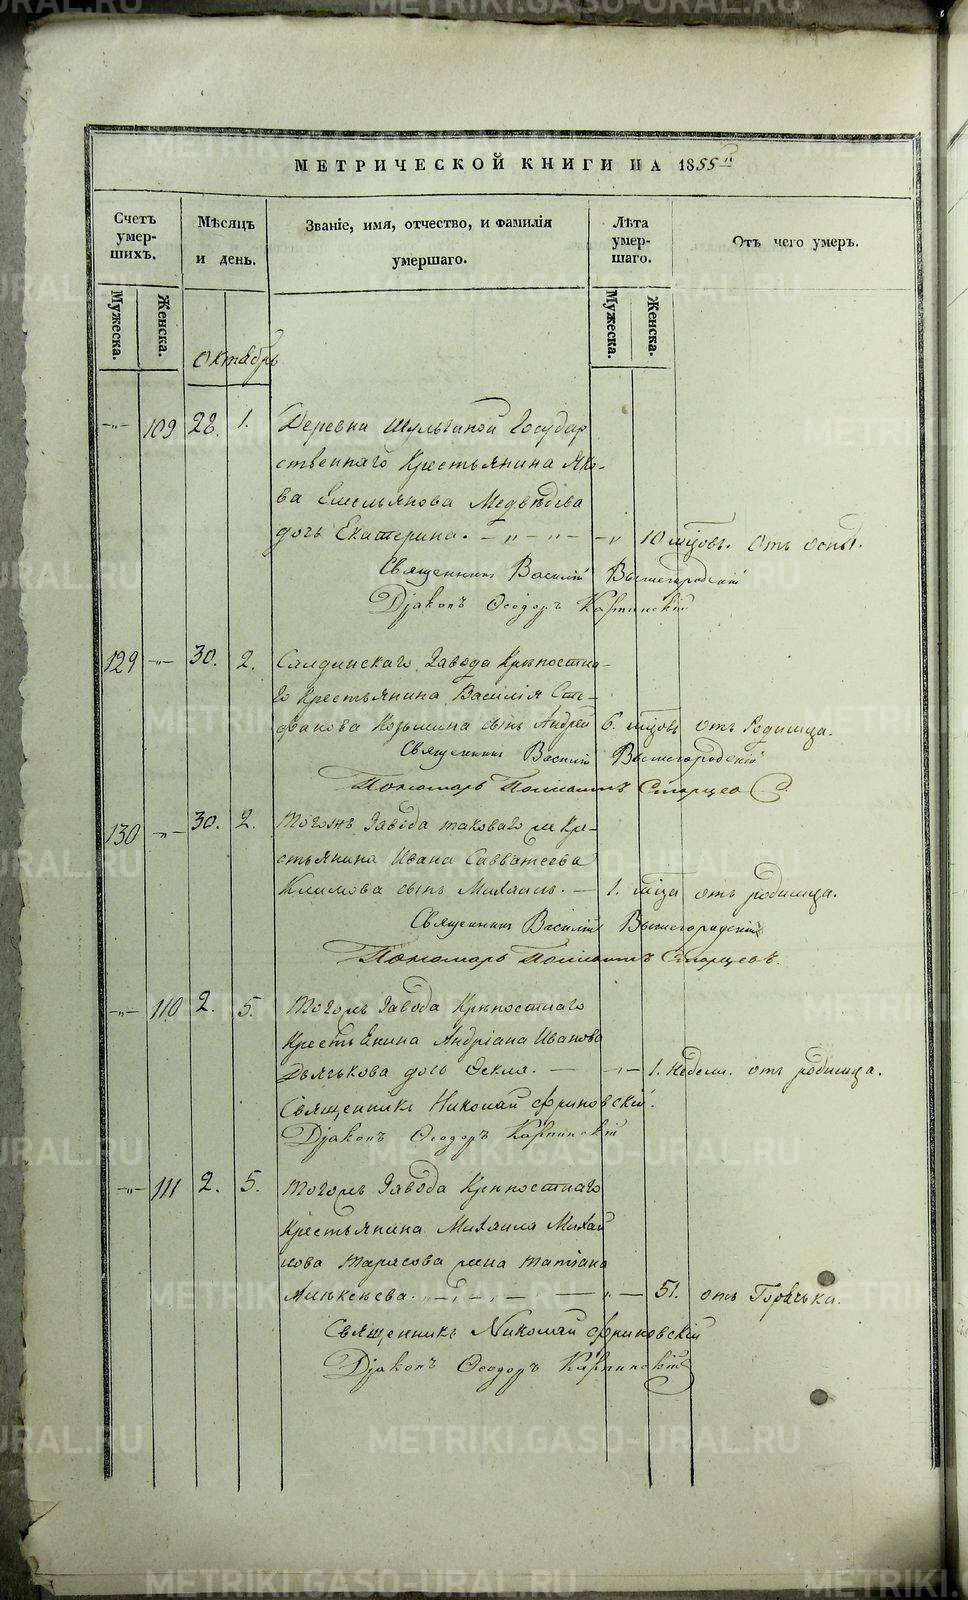 МЕТРИЧЕСКОЙ КНИГИ НА 1855й
Счетъ умер-шихъ.
Мѣсяцъ и день.
Званіе, имя, отчество, и фамилія умершаго.
Лѣта умер-шаго.
Отъ чего умеръ.
Мужеска. Женска.
Мужеска. Женска.
Октябрь
-"- 109 28. 1. Деревни Шульгиной Государ
ственнаго Крестьянина Яко-
ва Емельянова Медвѣдева
дочь Екатерина. - " - " - - " 10 мцовъ. Отъ оспы.
Священникъ Василій Вышегородскій
Діаконъ Ѳеодоръ Карпинскій
129 -"- 30. 2. Салдинскаго Завода Крѣпостна-
го Крестьянина Василія Сте-
фанова Козьмина сынъ Андрей 6. мцовъ отъ Родимца.
Священникъ Василій Вышегородскій
Пономарь Старцев
130 -"- 30. 2. Тогожъ Завода таковаго ж Кре-
стьянина Ивана Савватеева
Климова сынъ Михаилъ. — 1. мца отъ родимца.
Священникъ Василій Вышегородскій
Пономарь Старцевъ.
-"- 110 2. 5. Тогожъ Завода Крѣпостнаго
КрестьЕнина Андріана Иванова
Дьячькова дочь Ѳекла. — -"- 1. недели. отъ родимца.
Священникъ Николай Фриновскій.
Діаконъ Ѳеодоръ Карпинскій
-"- 111 2. 5. Тогожъ Завода Крѣпостнаго
Крестьянина Михаила Михай
лова Тарасова жена Татіана
- " - " - — " — 51. отъ Горячьки.
Священникъ Николай Фриновскій
Діаконъ Ѳеодоръ Карпинскій
METRIKI.GASO-URAL.RU